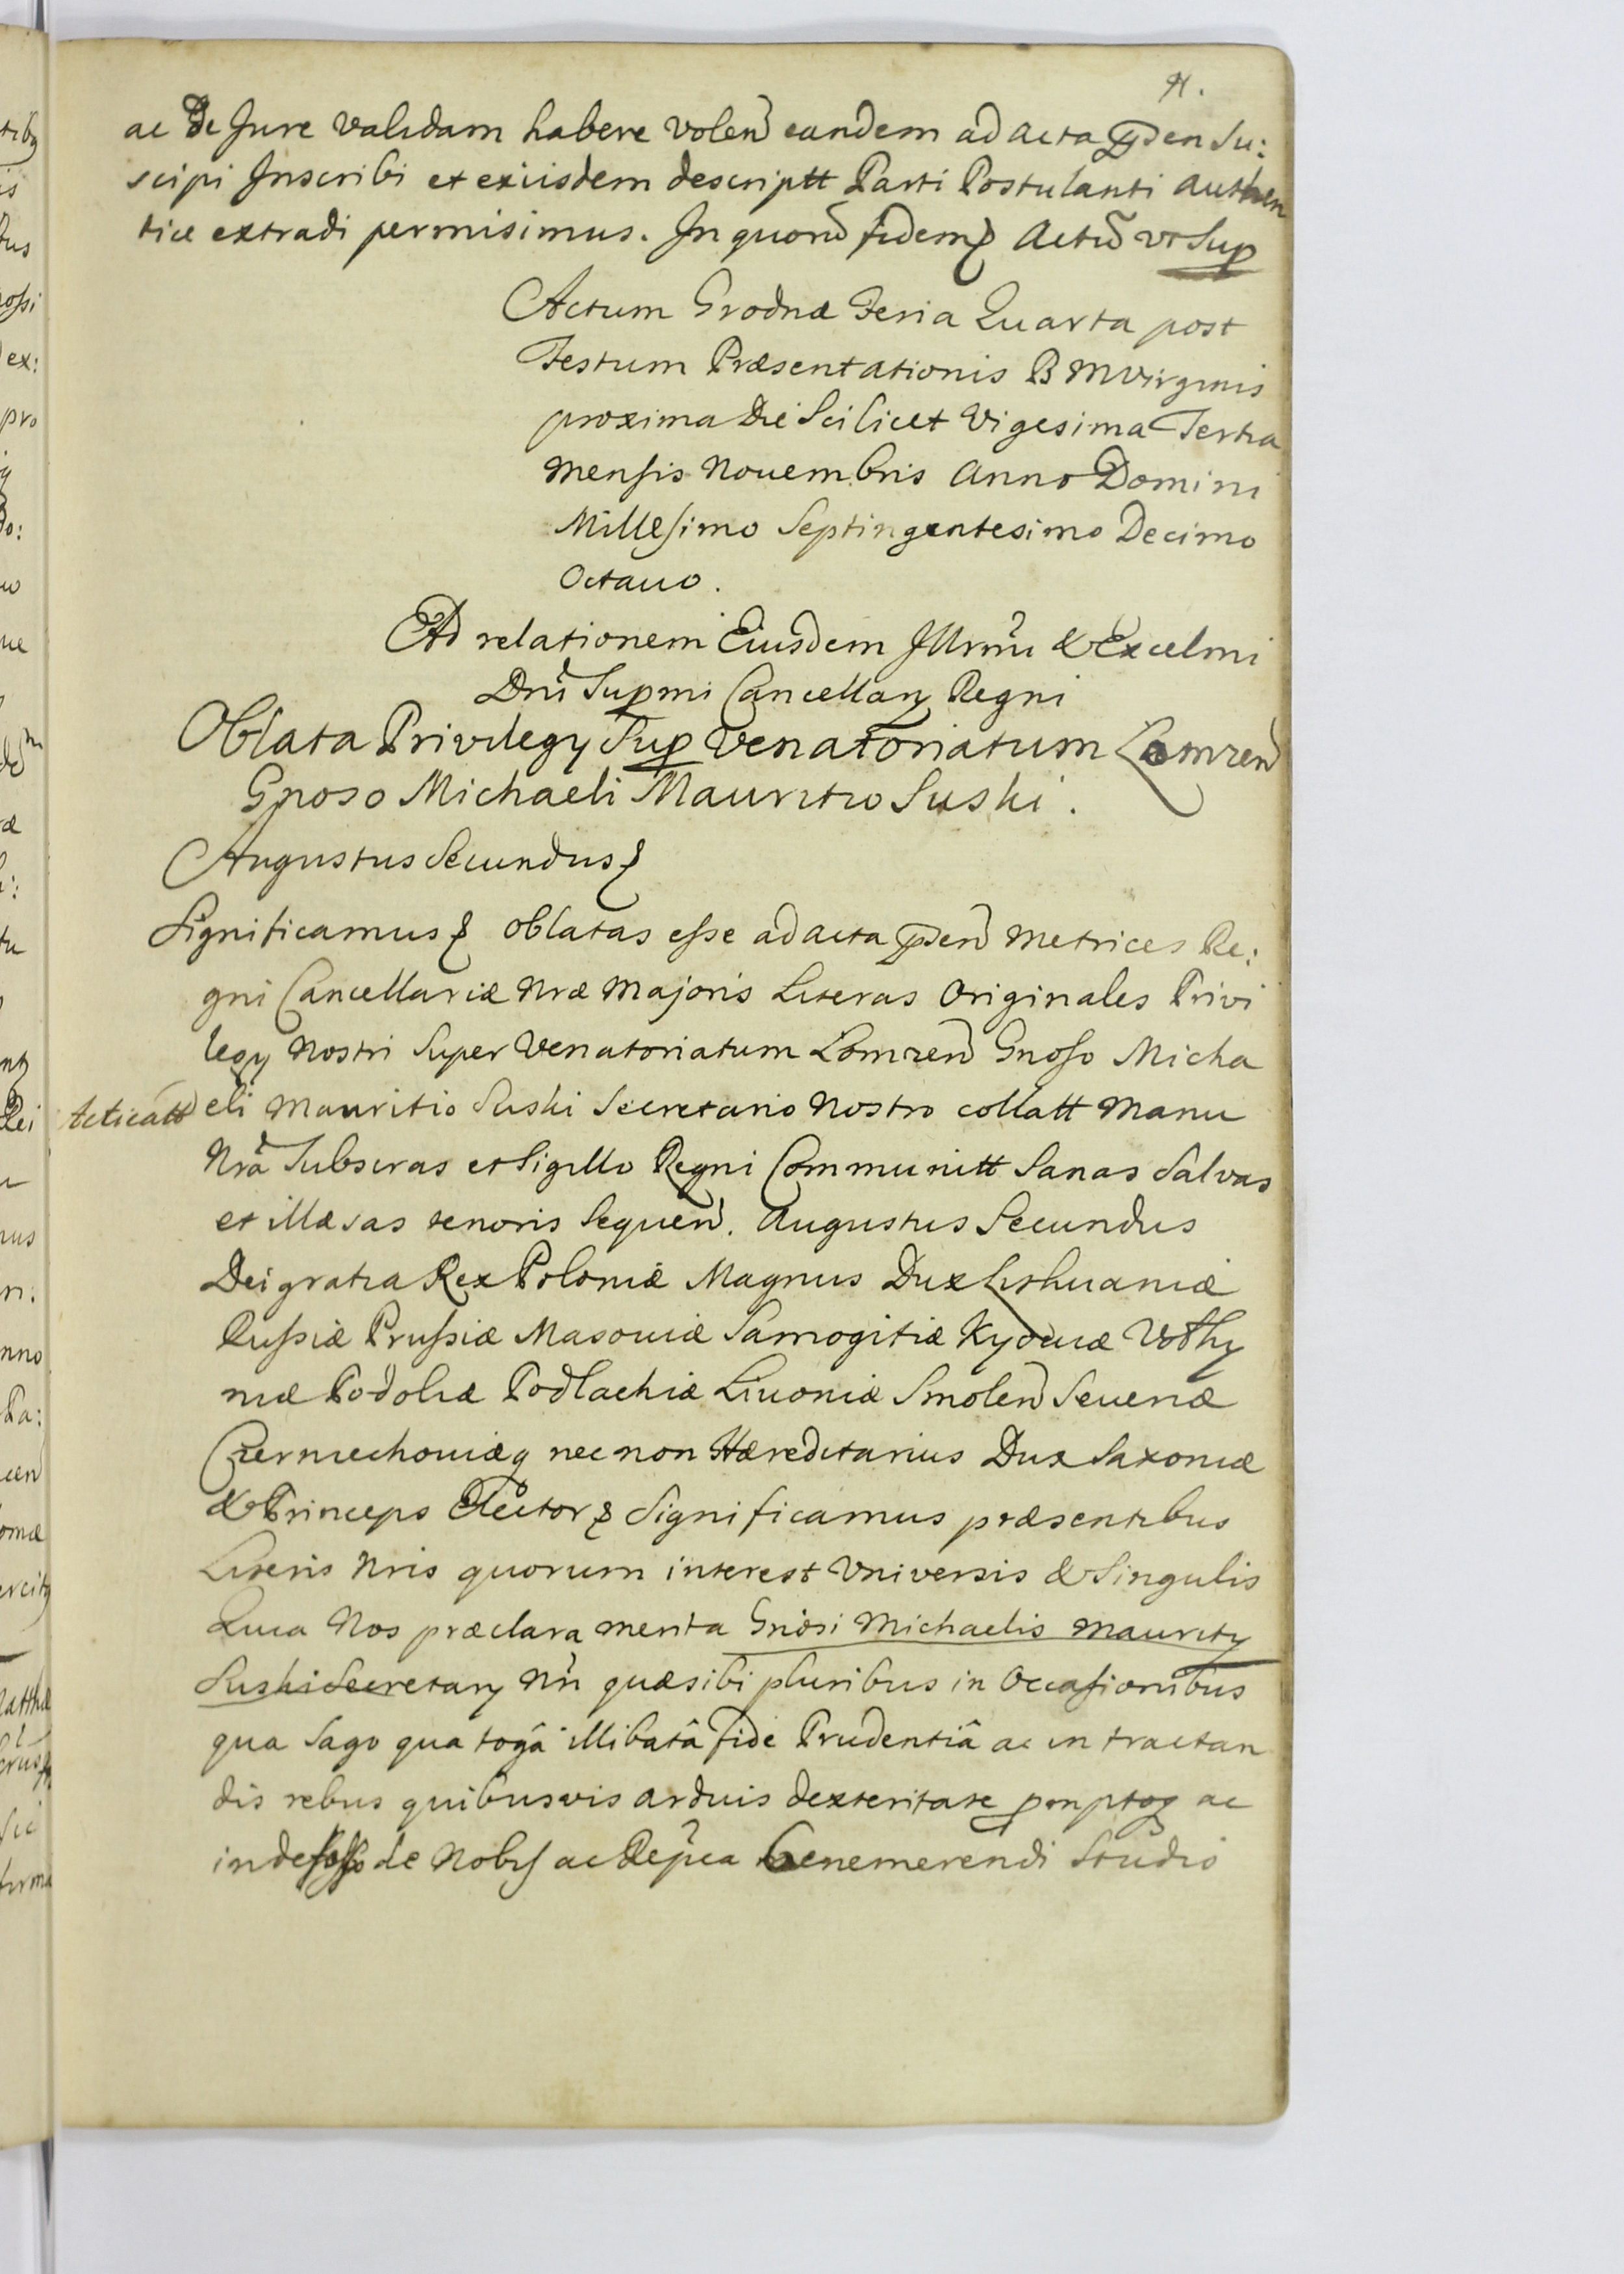 91.
ac de Jure validam habere volen eandem ad acta pden Su:
scipi Inscribi et eiusdem descriptt Parti Postulanti authen
tice extradi permisimus. In quorũ fidem Actũ vt Sup
Actum Grodnæ Feria Quarta post
Festum Præsentationis B M Virginis
proxima Die Scilicet Vigesima Tertia
Mensis Nouembris Anno Domini
Millesimo Septingentesimo Decimo
Octauo.
Ad relationem Eiusdem Illrmi & Excelmi
Dni Supmi Cancellarÿ Regni
Oblata Privilegÿ Sup Venatoriatum Lomzen
Gnoso Michaeli Mauritio Suski.
Augustus Secundus
Significamus oblatas esse ad acta pden Metrices Re:
gni Cancellariæ Nræ Majoris Literas Originales Privi
legÿ Nostri Super Venatoriatum Lomzen Gnoso Micha
Acticatt
eli Mauritio Suski Secretario Nostro collatt Manu
Nrã Subscras et Sigillo Regni Communitt Sanas Salvas
et illæsas tenoris Sequen. Augustus Secundus
Dei gratia Rex Poloniæ Magnus Dux Lithuaniæ
Russiæ Prussiæ Masouiæ Samogitiæ Kyouiæ Volhy
niæ Podoliæ Podlachiæ Liuoniæ Smolen Seueriæ
Czerniechouiæq nec non Hæreditarius Dux Saxoniæ
& Princeps Elector Significamus præsentibus
Literis Nris quorum interest Vniversis & Singulis
Quia Nos præclara merita Gnosi Michaelis Mauritÿ
Suski Secretarÿ Nri quæ sibi pluribus in Occasionibus
qua Sago qua togâ illibatâ fide Prudentiâ ac in tractan
dis rebus quibusvis arduis dexteritate promptoq ac
indefesso de Nobis ac Repca benemerendi Studio